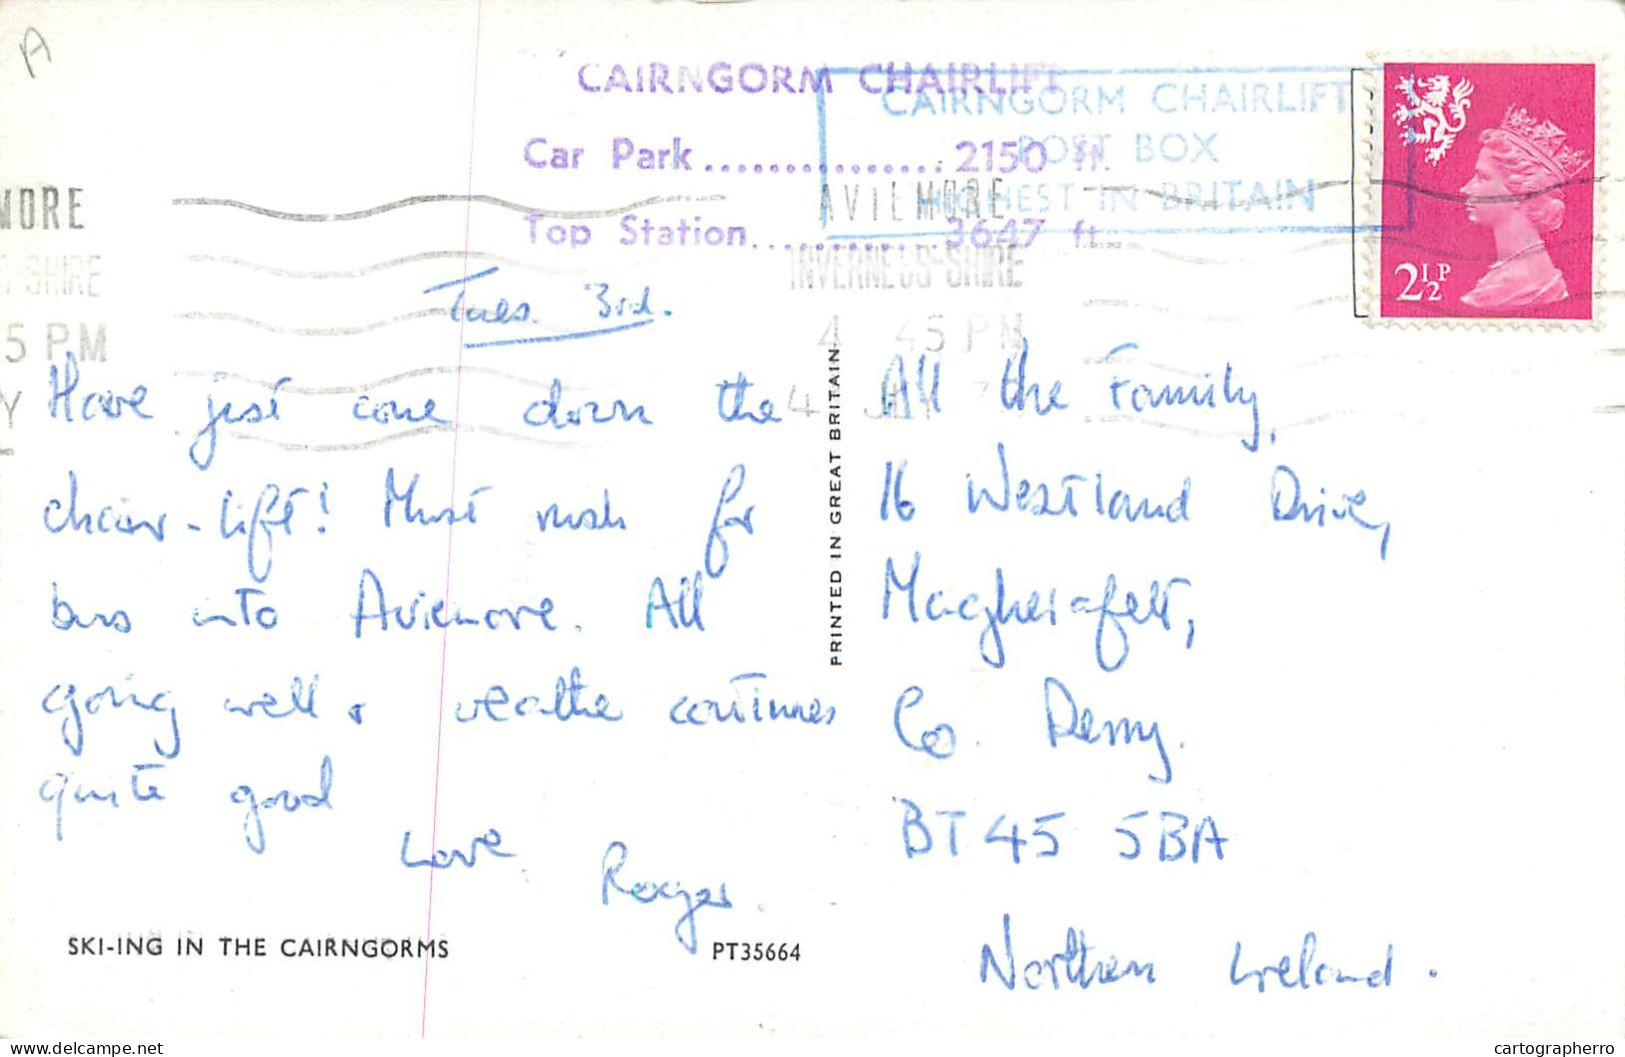 A
CAIRNGORM CHAIRLIFT
Car Park ............... 2150 ft.
Top Station ............ 3647 ft
CAIRNGORM CHAIRLIFT
POST BOX
HIGHEST IN BRITAIN
2½P
MORE
SHIRE
5 PM
Y
AVIEMORE
INVERNESS-SHIRE
4 45 PM
4
Tues. 3rd.
Have just come down the
chair-lift! Must rush for
bus into Aviemore. All
going well & weather continues
quite good
Love
Roger.
SKI-ING IN THE CAIRNGORMS
PT35664
PRINTED IN GREAT BRITAIN
All the Family,
16 Westland Drive,
Magherafelt,
Co. Derry.
BT45 5BA
Northern Ireland.
delcampe.net
cartographerro